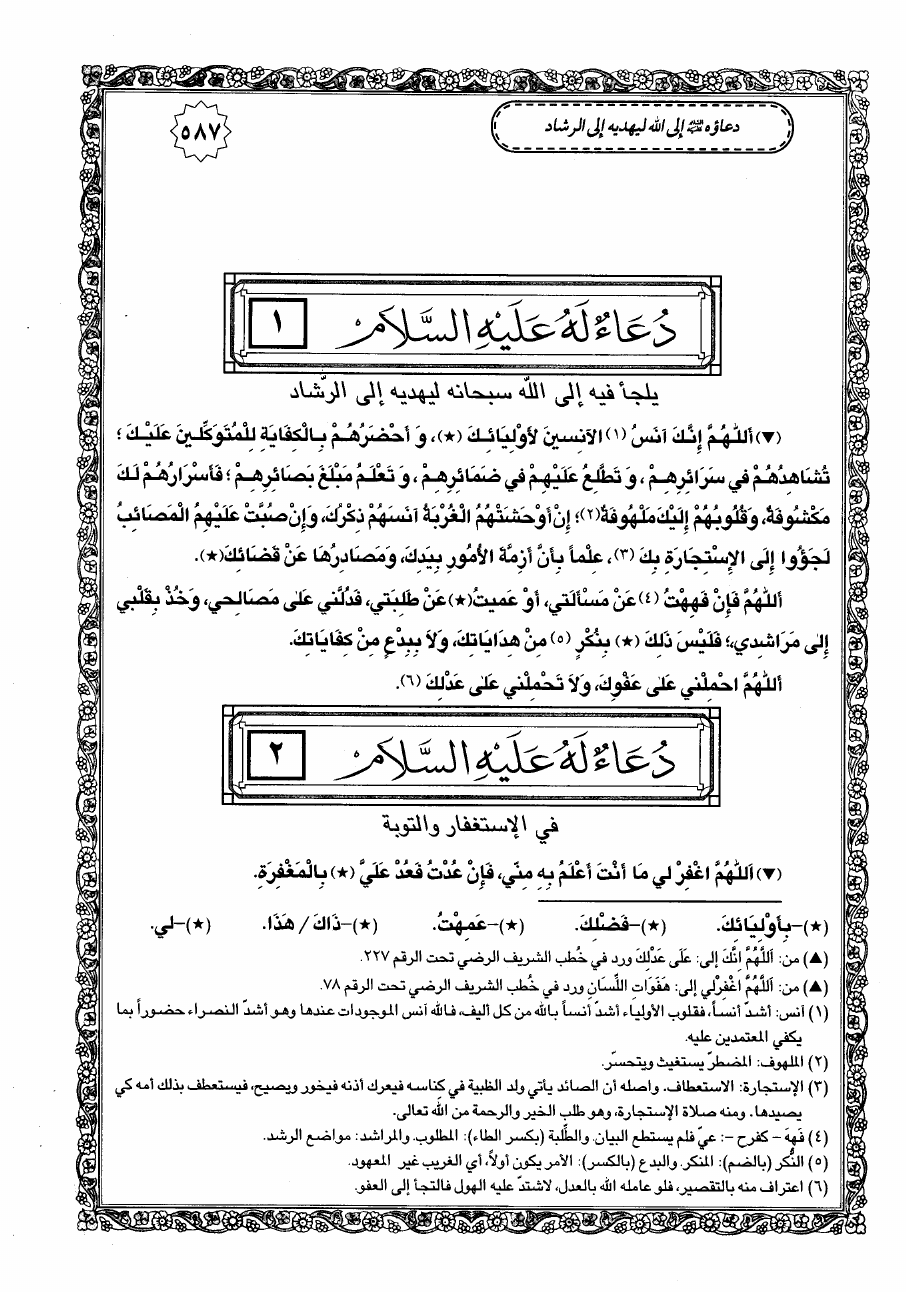 دعاؤه عليه السلام إلى الله ليهديه إلى الرشاد
٥٨٧
دُعَاءٌ لَهُ عَلَيْهِ السَّلَامُ
١
يلجأ فيه إلى اللّه سبحانه ليهديه إلى الرّشاد
(▼) أَللّهُمَّ إِنَّكَ آنَسُ (١) الآنِسينَ لأَوْلِيَائِكَ (★)، وَ أَحْضَرُهُمْ بِالْكِفَايَةِ لِلْمُتَوَكِّلينَ عَلَيْكَ ؛
تُشَاهِدُهُمْ في سَرَائِرِهِمْ، وَ تَطَّلِعُ عَلَيْهِمْ في ضَمَائِرِهِمْ، وَ تَعْلَمُ مَبْلَغَ بَصَائِرِهِمْ ؛ فَأَسْرَارُهُمْ لَكَ
مَكْشُوفَةٌ، وَقُلُوبُهُمْ إِلَيْكَ مَلْهُوفَةٌ (٢)؛ إِنْ أَوْحَشَتْهُمُ الْغُرْبَةُ آنَسَهُمْ ذِكْرُكَ، وَإِنْ صُبَّتْ عَلَيْهِمُ الْمَصَائِبُ
لَجَؤُوا إِلَى الإِسْتِجَارَةِ بِكَ (٣)، عِلْماً بِأَنَّ أَزِمَّةَ الأُمُورِ بِيَدِكَ، وَمَصَادِرُهَا عَنْ قَضَائِكَ (★).
أَللّهُمَّ فَإِنْ فَهِهْتُ (٤) عَنْ مَسْأَلَتي، أَوْ عَميتُ (★) عَنْ طَلِبَتي، فَدُلَّني عَلى مَصَالِحي، وَخُذْ بِقَلْبي
إِلى مَرَاشِدي،؛ فَلَيْسَ ذَلِكَ (★) بِنُكْرٍ (٥) مِنْ هِدَايَاتِكَ، وَلاَ بِبِدْعٍ مِنْ كِفَايَاتِكَ.
أَللّهُمَّ احْمِلْني عَلى عَفْوِكَ، وَلاَ تَحْمِلْني عَلى عَدْلِكَ (٦).
دُعَاءٌ لَهُ عَلَيْهِ السَّلَامُ
٢
في الإستغفار والتوبة
(▼) أَللّهُمَّ اغْفِرْ لي مَا أَنْتَ أَعْلَمُ بِهِ مِنّي، فَإِنْ عُدْتُ فَعُدْ عَلَيَّ (★) بِالْمَغْفِرَةِ.
(★)-بِأَوْلِيَائِكَ. (★)-فَضْلِكَ. (★)-عَمِهْتُ. (★)-ذَاكَ / هَذَا. (★)-لي.
(▲) من: أَللَّهُمَّ إِنَّكَ إلى: عَلَى عَدْلِكَ ورد في خُطب الشريف الرضي تحت الرقم ٢٢٧.
(▲) من: أَللَّهُمَّ اغْفِرْلي إلى: هَفَوَاتِ اللِّسَانِ ورد في خُطب الشريف الرضي تحت الرقم ٧٨.
(١) آنس: أشدّ أنساً، فقلوب الأولياء أشدّ أنساً بالله من كل أليف، فالله آنس الموجودات عندها وهو أشدّ النصراء حضوراً بما
يكفي المعتمدين عليه.
(٢) الملهوف: المضطرّ يستغيث ويتحسّر.
(٣) الإستجارة: الاستعطاف. واصله أن الصائد يأتي ولد الظبية في كناسه فيعرك أذنه فيخور ويصيح، فيستعطف بذلك أمه كي
يصيدها. ومنه صلاة الإستجارة، وهو طلب الخير والرحمة من الله تعالى.
(٤) فَهِهَ - كفرح -: عيّ فلم يستطع البيان. والطِّلبة (بكسر الطاء): المطلوب. والمراشد: مواضع الرشد.
(٥) النُّكر (بالضم): المنكر. والبدع (بالكسر): الأمر يكون أولاً، أي الغريب غير المعهود.
(٦) اعتراف منه بالتقصير، فلو عامله الله بالعدل، لاشتدّ عليه الهول فالتجأ إلى العفو.